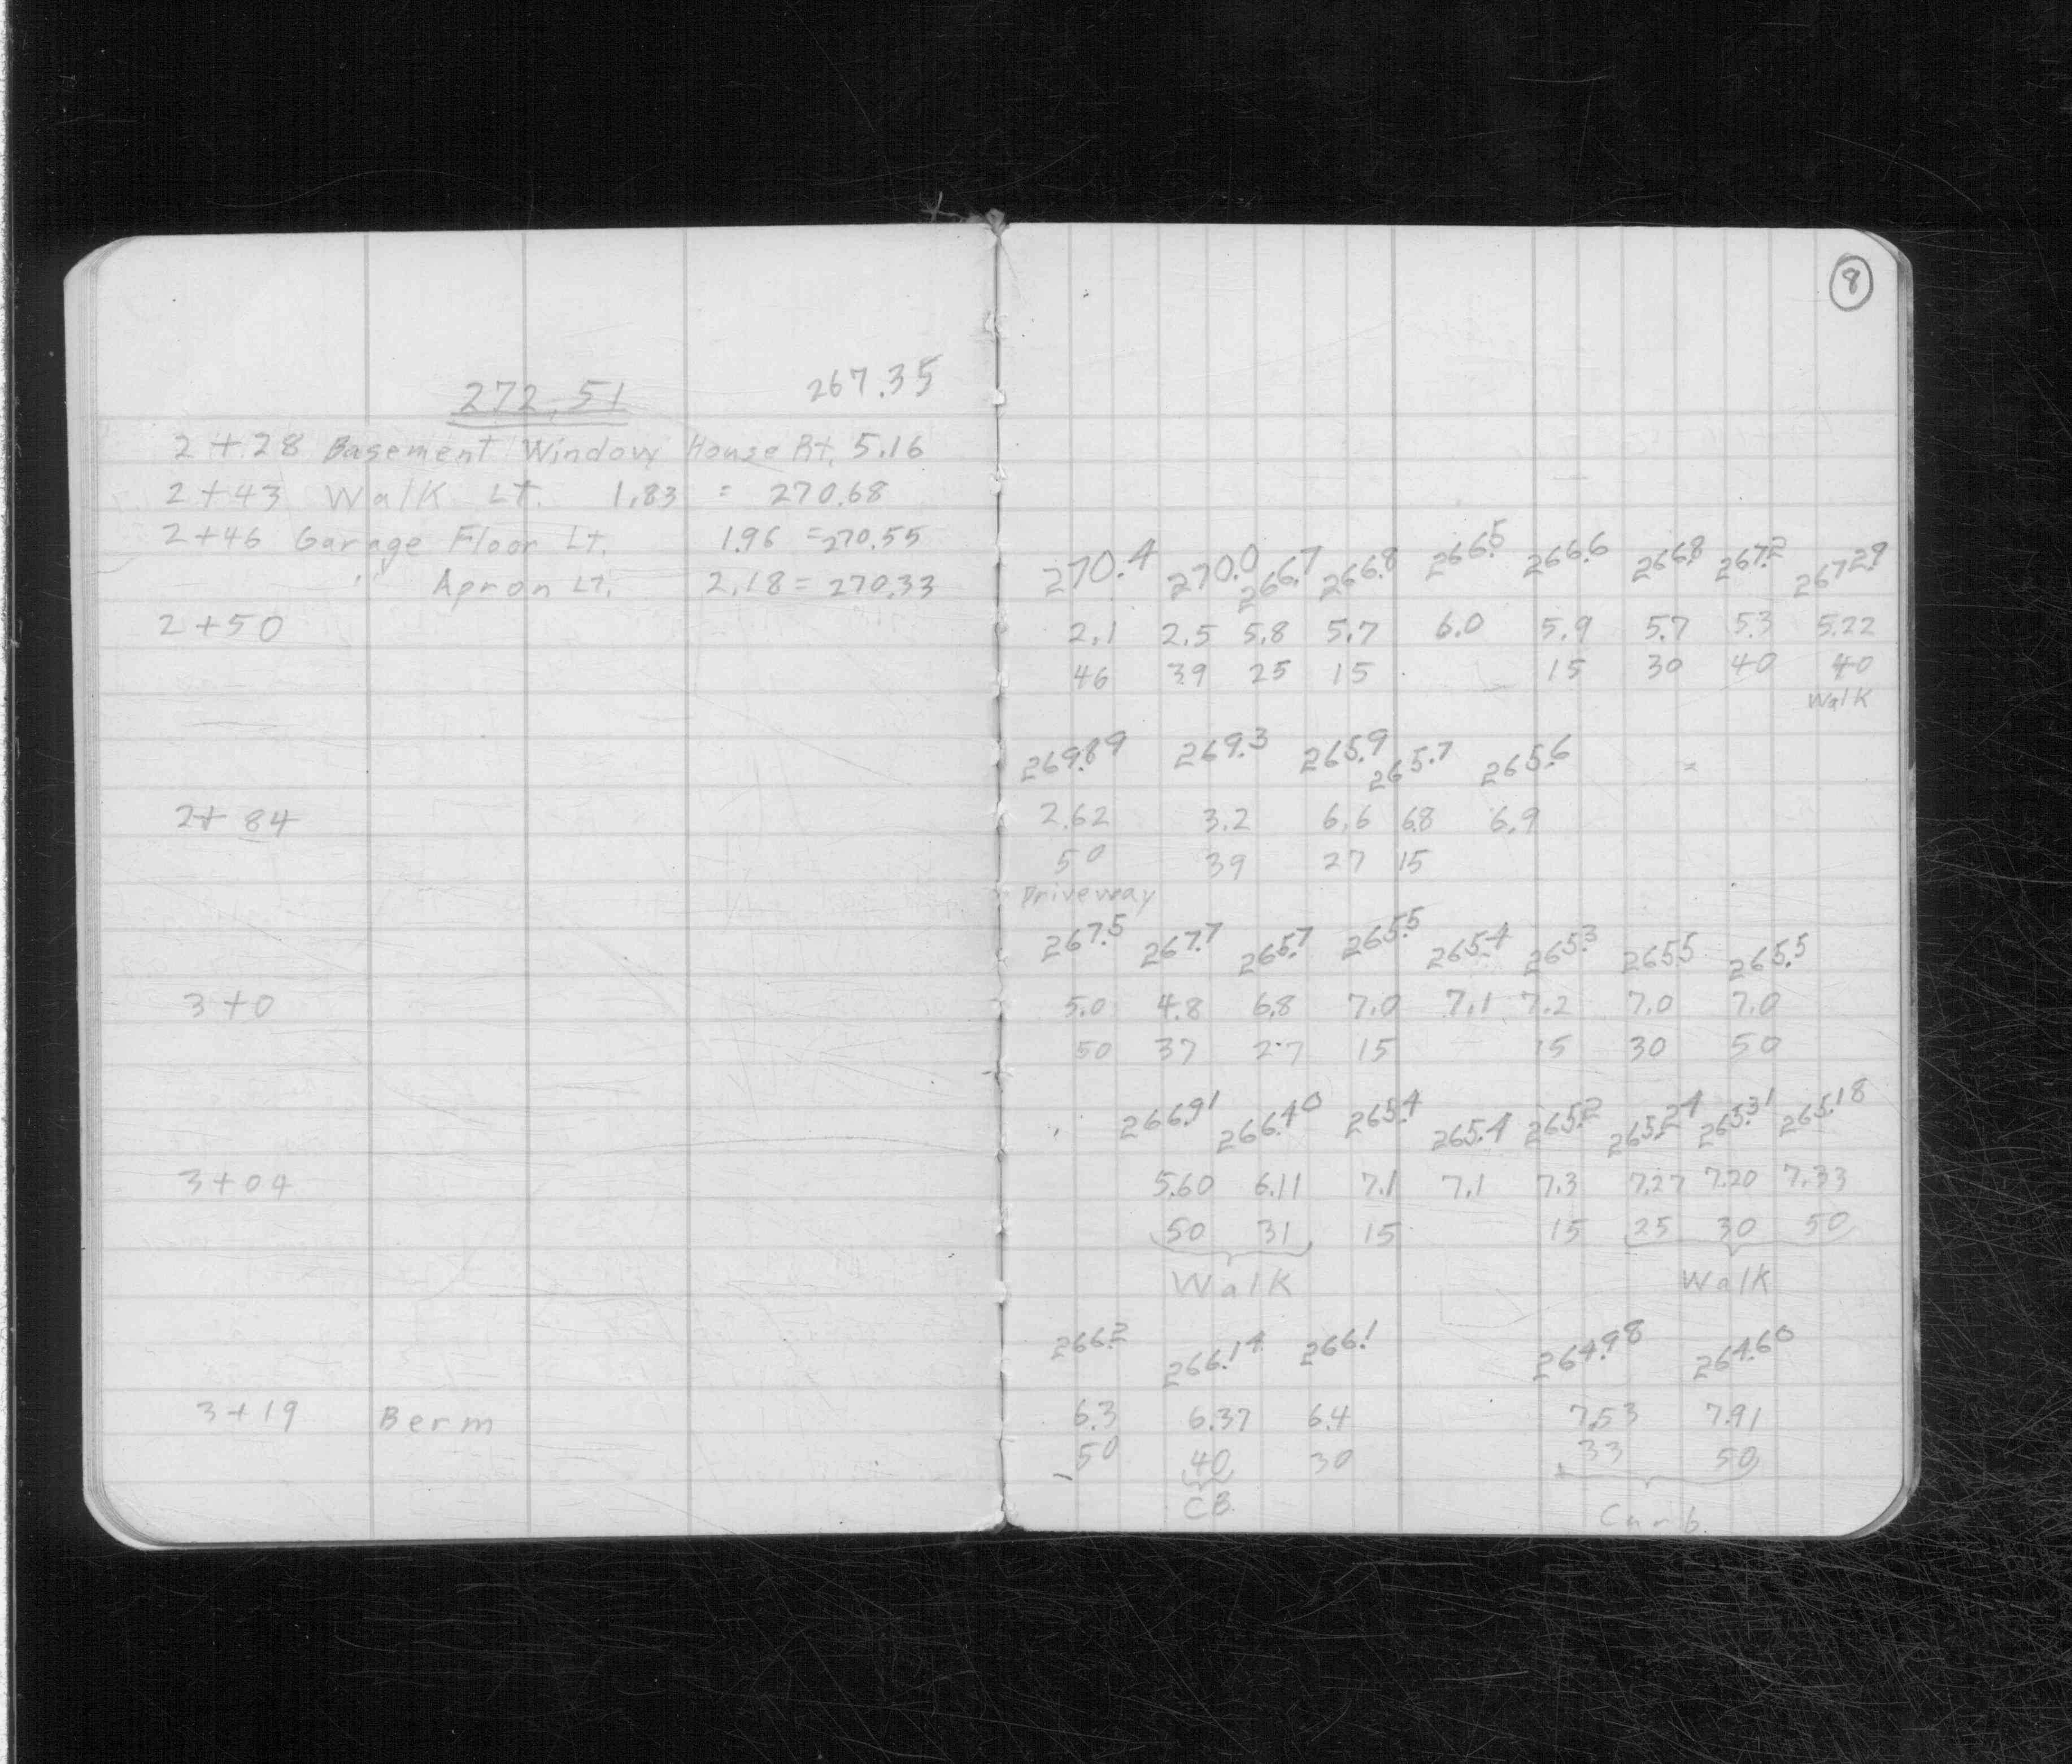 8
272.51 267.35
2+28 Basement Window House Rt. 5.16
2+43 Walk Lt. 1.83 = 270.68
2+46 Garage Floor Lt. 1.96 = 270.55
" Apron Lt. 2.18 = 270.33
270.4 270.0 266.7 266.8 266.5 266.6 266.8 267.2 267.29
2+50 2.1 2.5 5.8 5.7 6.0 5.9 5.7 5.3 5.22
46 39 25 15 15 30 40 40
Walk
269.89 269.3 265.9 265.7 265.6
2+84 2.62 3.2 6.6 6.8 6.9
50 39 27 15
Driveway
267.5 267.7 265.7 265.5 265.4 265.3 265.5 265.5
3+0 5.0 4.8 6.8 7.0 7.1 7.2 7.0 7.0
50 37 27 15 15 30 50
266.91 266.40 265.4 265.4 265.2 265.24 265.31 265.18
3+04 5.60 6.11 7.1 7.1 7.3 7.27 7.20 7.33
50 31 15 15 25 30 50
Walk Walk
266.2 266.14 266.1 264.98 264.60
3+19 Berm 6.3 6.37 6.4 7.53 7.91
50 40 30 33 50
CB Curb